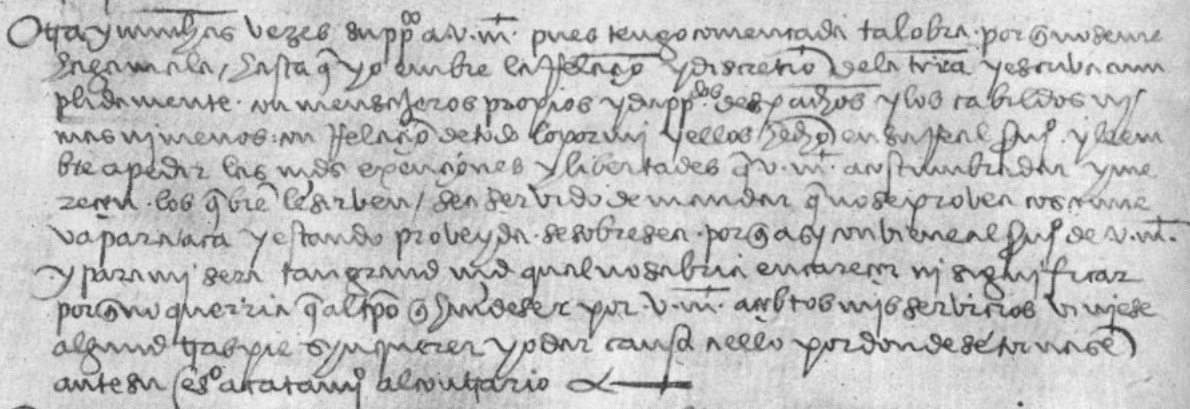 Otra y muchas vezes supp.co a v. m. pues tengo comencada tal obra. por q no se me
haga mala / hasta q yo embie la rrelaçio y discrecio de la trra y escriba cum
plidamente. con mensajeros propios y dupp.dos despachos y los cabildos ni
mas ni menos: con rrelaçio de todo lo por mi y ellos hecho en su rreal sui.o y le em
bie a pedir las mds exençiones y libertades q v. m. acostumbra dar y me
reçen. los q bie le sirben / sea servido de mandar q no se probea cosa nue
va para aca y estando proveyda. se sobresea. por q asy conbiene al sui.o de v. m.
y para mi sera tan grand md qual no sabria encarecer ni significar
por q no querria q al tpo q han de ser por v. m. acebtos mis servicios viniese
algund traspie syn querer yo dar causa a ello por donde se tornase
ante su ces.o acatami.o al contrario